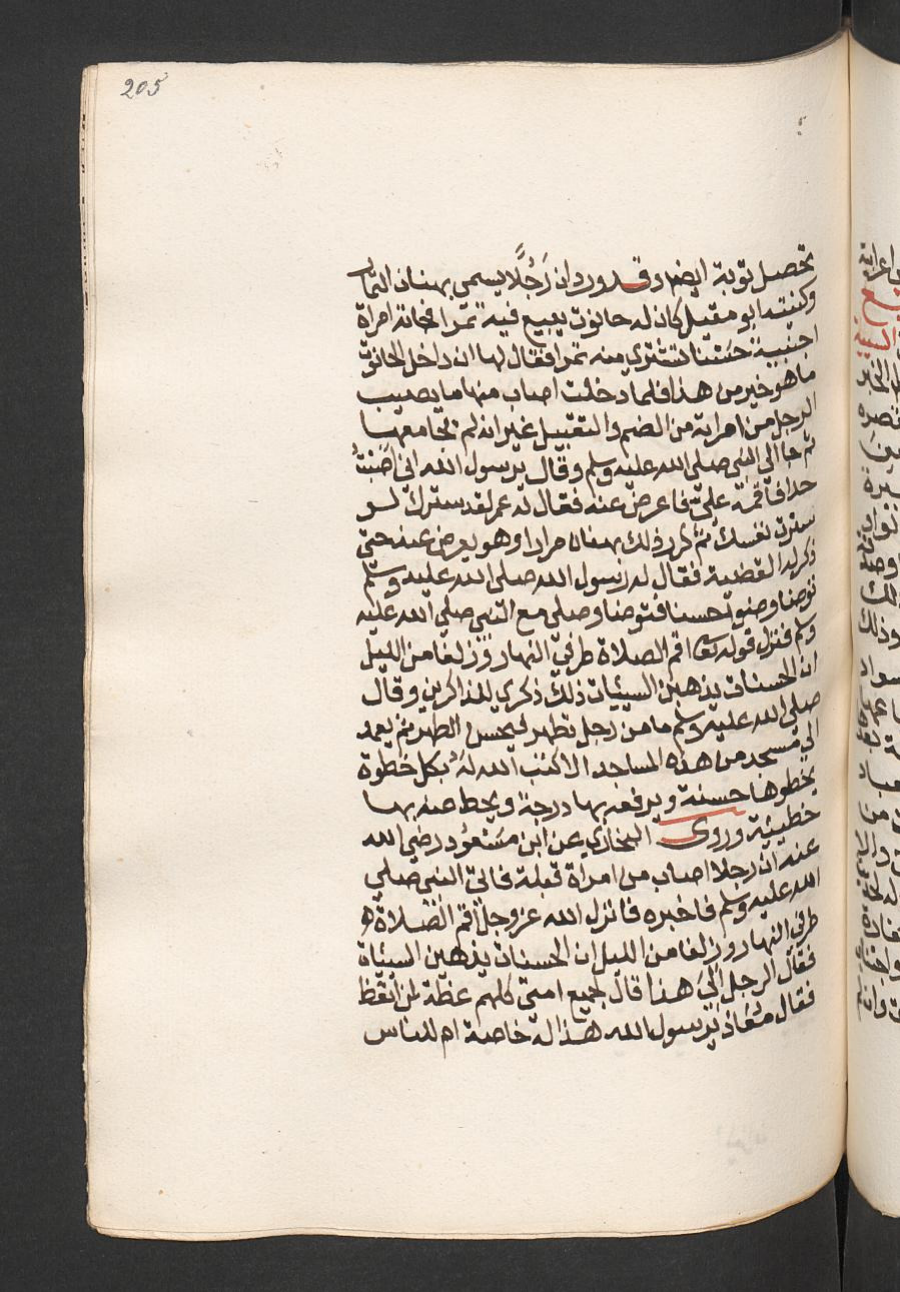 205
تحصل توبة ايضا وقد ورد ان رَجُلًا يسمى بهنان التمار
وكنيته ابو مقبل كان له حانوت يبيع فيه تمرا فجاته امراة
اجنبية حَسَنا تشتري منه تمرا فقال لها ان داخل الحانوت
ما هو خير من هذا فلما دخلت اصاب منها ما يصيب
الرجل من امراته من الضم والتقبيل غير انه لم يجامعها
ثم جا الى النبي صلى الله عليه وسلم وقال يرسول الله اني اصَبْتُ
حدا فاقمه عليّ فاعرض عنه فقال له عمر لقد سترك لو
سترت نفسك ثم كرر ذلك بهنان مرارا وهو يعرض عنه حتى
ذكر له القضية فقال له رسول الله صلى الله عليه وسلم
توضا وضوءا حسنا فتوضا وصلى مع النبي صلى الله عليه
وسلم فنزل قوله تعا اقم الصلاة طرفي النهار وزلفا من الليل
ان الحسنات يذهبن السيئات ذلك ذكري للذاكرين وقال
صلى الله عليه وسلم ما من رجل تطهر فيحسن الطهر ثم يعمد
الى مسجد من هذه المساجد الا كتب الله لهُ بكل خطوة
يخطوها حسنة ويرفعه بها درجة ويحط عنه بها
خطيئة وروى البخاري عن ابن مَسْعُود رضي الله
عنه ان رجلا اصاب من امراة قبلة فاتى النبي صلى
الله عليه وسلم فاخبره فانزل الله عز وجل اقم الصَّلاة
طرفي النهار وزلفا من الليل ان الحسنات يذهبن السيئات
فقال الرجل أليَ هذا قال لجميع امتي كلهم عظة لمن اتعظ
فقال مُعَاذ يرسول الله هذا له خاصة ام للناس